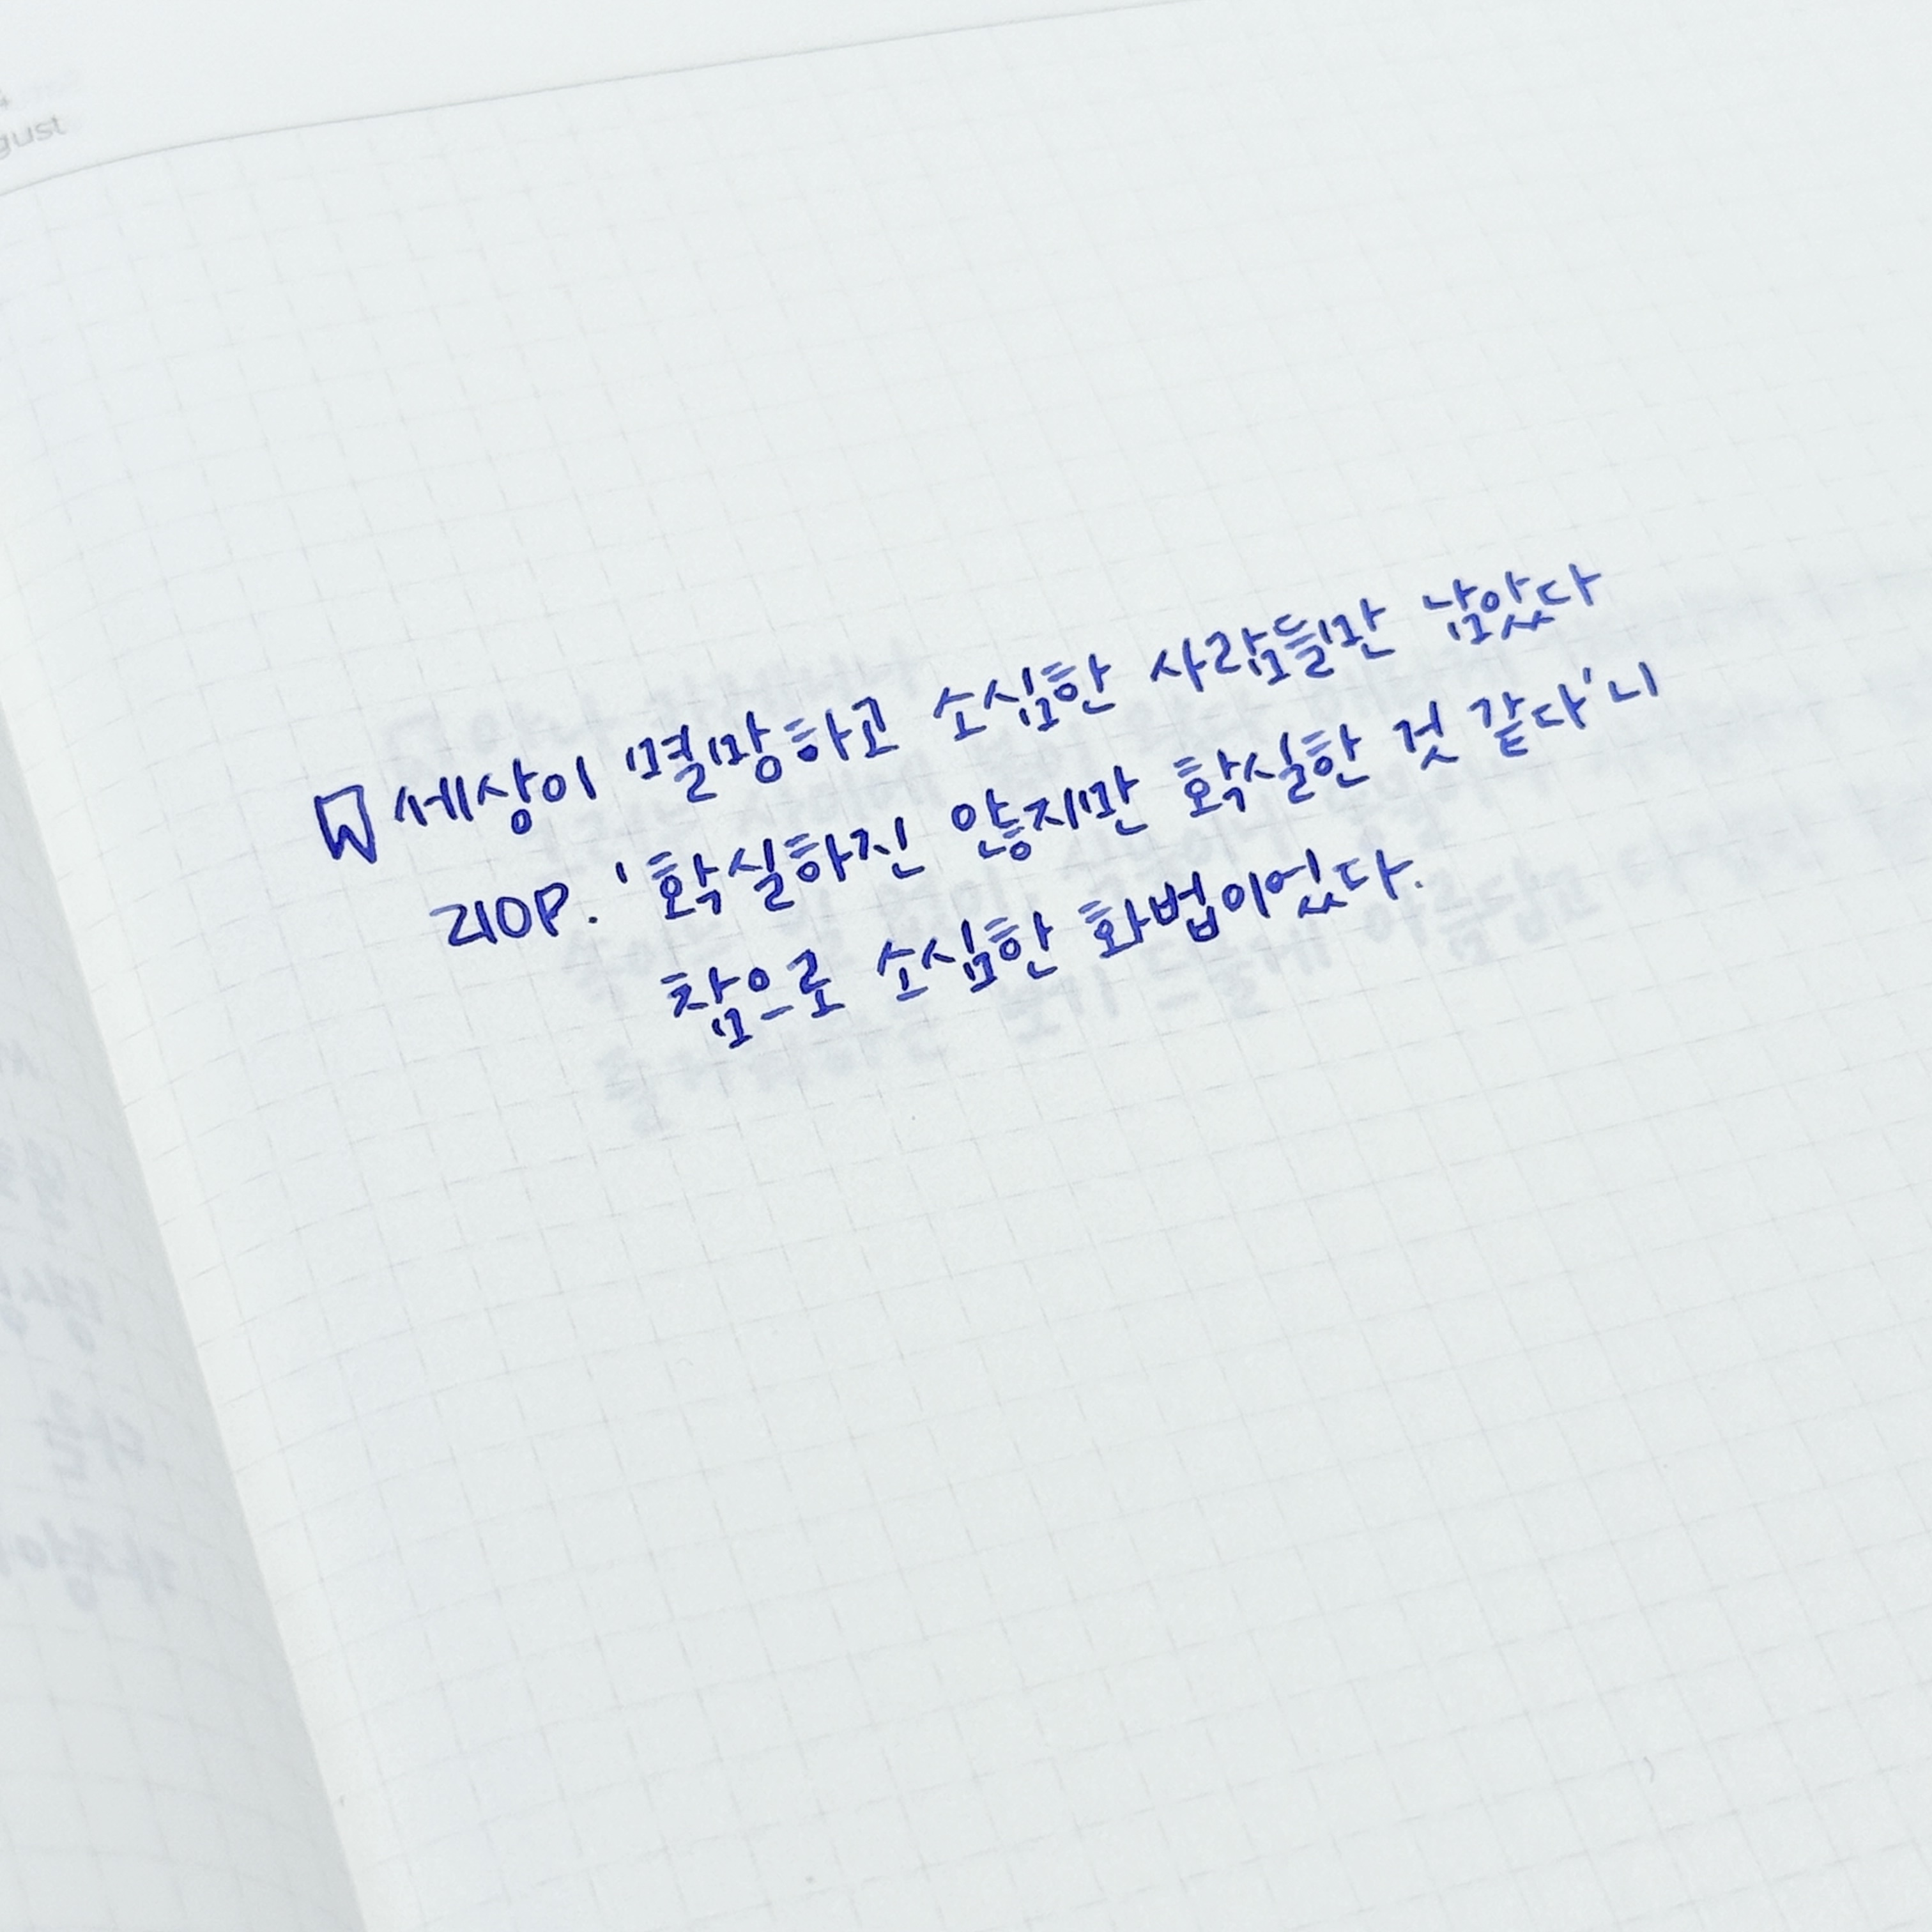 gust
세상이 멸망하고 소심한 사람들만 남았다
210P. '확실하진 않지만 확실한 것 같다'니
참으로 소심한 화법이었다.